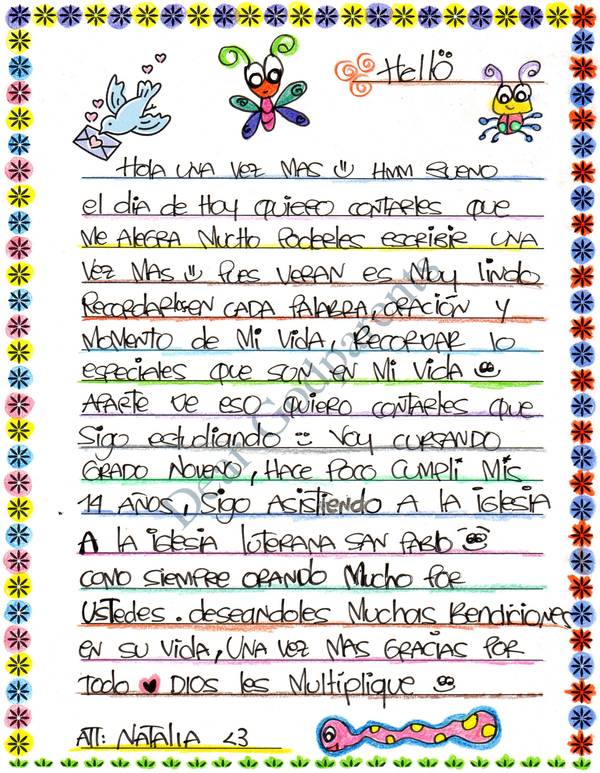 Hello
Hola UNA VEZ MAS HMM BUENO
el DIA de Hoy QUIERO CONTARLES QUE
Me AleGRA Mucho PODERLES ESCRIBIR UNA
VEZ MAS PUES VERAN ES MUY lindo
RECORDARlos EN CADA PALABRA, ORACIÓN Y
MOMENTO de Mi VIDA, RECORDAR lo
especiales QUE SON EN Mi Vida
APARTE DE ESO QUIERO CONTARLES QUE
Sigo estudiando VOY CURSANDO
GRADO NOVENO, HACE POCO CUMPLI MIS
14 AÑOS, Sigo Asistiendo A la iglesia
A la iglesia luterana SAN PABlo
COMO SIEMPRE ORANDO Mucho POR
USTEDES. deseandoles Muchas Bendiciones
EN SU VIDA, UNA VEZ MAS GRACIAS POR
Todo DIOS les Multiplique
ATT: NATALIA <3
Dear Godparents